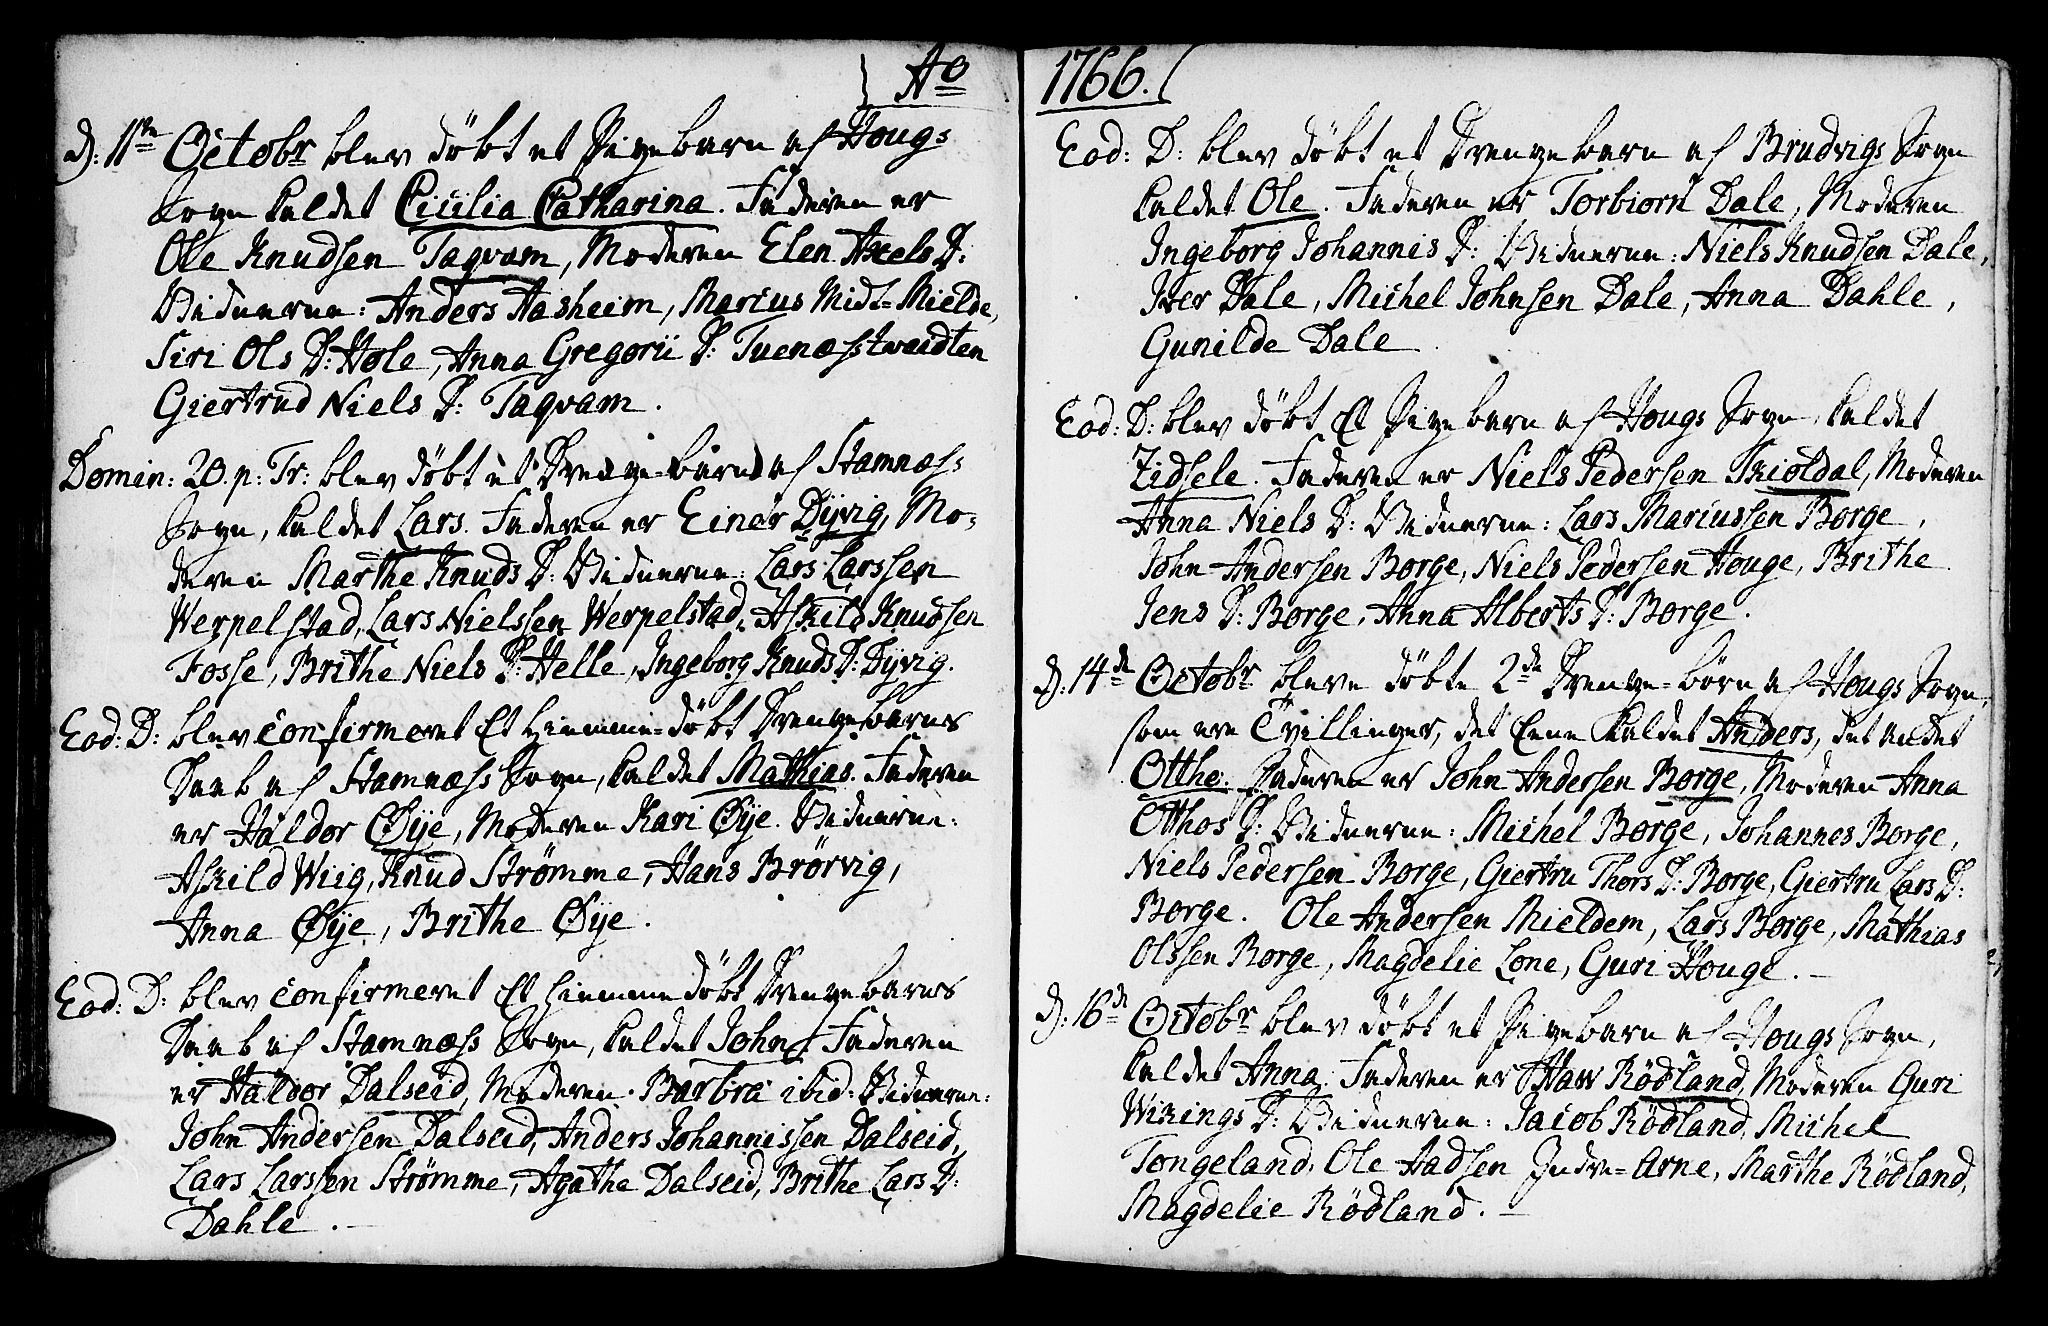 Ao
d: 11te Octobr blev döbt et Pigebarn af Hougs
Sogn kaldet Cicilia Catharina. Faderen er
Ole Knudsen Taqvam, Moderen Elen Axels D:
Vidnerne: Anders Aasheim, Marius Midt-Mielde,
Siri Ols D: Hole, Anna Gregorii D: Tuenæsstvedten
Giertrud Niels D: Taqvam.
Domin: 20. p: Tr: blev döbt et Drenge-barn af Stamnæss
Sogn, kaldet Lars. Faderen er Einer Dyvig, Mo-
deren Marthe Knuds D: Vidnerne: Lars Larssen
Werpelstad, Lars Nielssen Werpelstad, Askild Knudsen
Fosse, Brithe Niels D: Helle, Ingeborg Knuds D: Dyvig.
Eod: D: blev confirmeret Et hiemme-döbt Drengebarns
Daab af Stamnæss Sogn, kaldet Mathias. Faderen
er Haldor Øye, Moderen Kari Øye. Vidnerne:
Askild Wiig, Knud Strömme, Hans Brörvig,
Anna Øye, Brithe Øye.
Eod: D: blev confirmeret Et hiemme döbt Drengebarns
Daab af Stamnæss Sogn, kaldet John. Faderen
er Haldor Dalseid, Moderen Barbra ibid: Vidnerne:
John Andersen Dalseid, Anders Johannissen Dalseid,
Lars Larssen Strömme, Agathe Dalseid, Brithe Lars D:
Dahle.
1766.
Eod: D: blev döbt et Drengebarn af Brudvigs Sogn
kaldet Ole. Faderen er Torbiorn Dale, Moderen
Ingeborg Johannis D: Vidnerne: Niels Knudsen Dale,
Iver Dale, Michel Johnsen Dale, Anna Dahle,
Gunilde Dale.
Eod: D: blev döbt Et Pigebarn af Hougs Sogn, kaldet
Zidsele. Faderen er Niels Pedersen Skioldal, Moderen
Anna Niels D: Vidnerne: Lars Mariussen Borge,
John Andersen Borge, Niels Pedersen Houge, Brithe
Jens D: Borge, Anna Alberts D: Borge.
d: 14de Octobr bleve döbte 2de Drenge-börn af Hougs Sogn,
som ere Tvillinger, det Eene kaldet Anders, det andet
Otthe. Faderen er John Andersen Borge, Moderen Anna
Otthos D: Vidnerne: Michel Borge, Johannes Borge,
Niels Pedersen Borge, Giertru Thors D: Borge, Giertru Lars D:
Borge. Ole Andersen Mieldem, Lars Borge, Mathias
Olssen Borge, Magdelie Lone, Guri Houge.
d: 16de Octobr blev döbt et Pigebarn af Hougs Sogn,
kaldet Anna. Faderen er Haw Rödland, Moderen Guri
Wikings D: Vidnerne: Jacob Rödland, Michel
Tongeland, Ole Aadsen Indre-Arne, Marthe Rödland,
Magdelie Rödland.